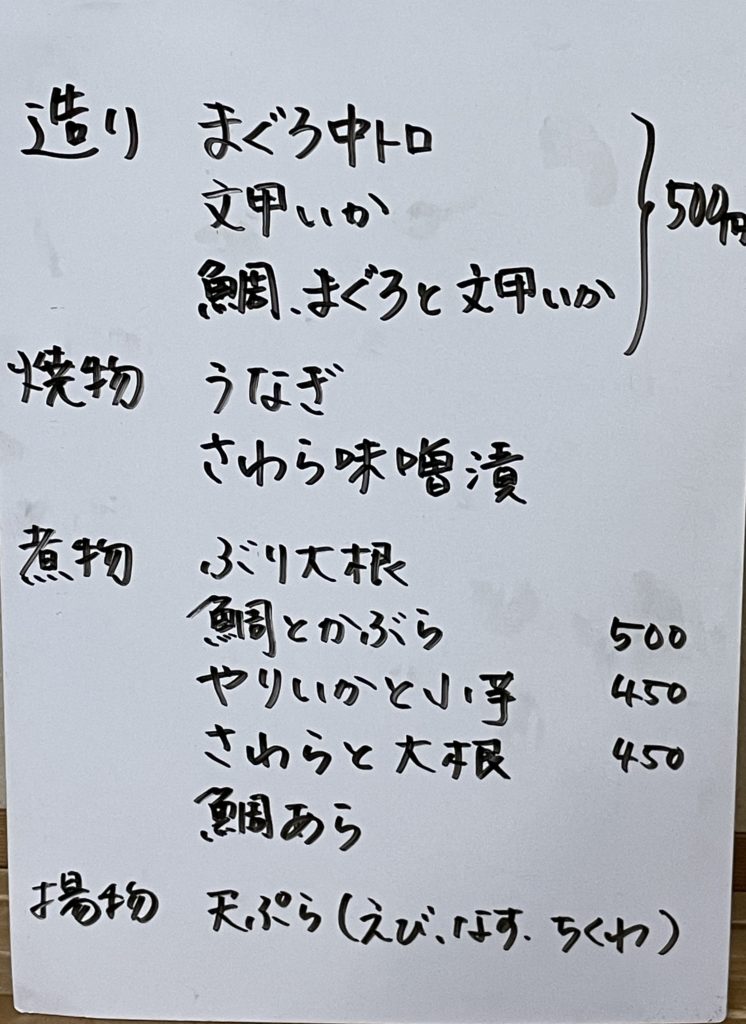 造り まぐろ中トロ
文甲いか 500円
鯛、まぐろと文甲いか
焼物 うなぎ
さわら味噌漬
煮物 ぶり大根
鯛とかぶら 500
やりいかと小芋 450
さわらと大根 450
鯛あら
揚物 天ぷら(えび、なす、ちくわ)